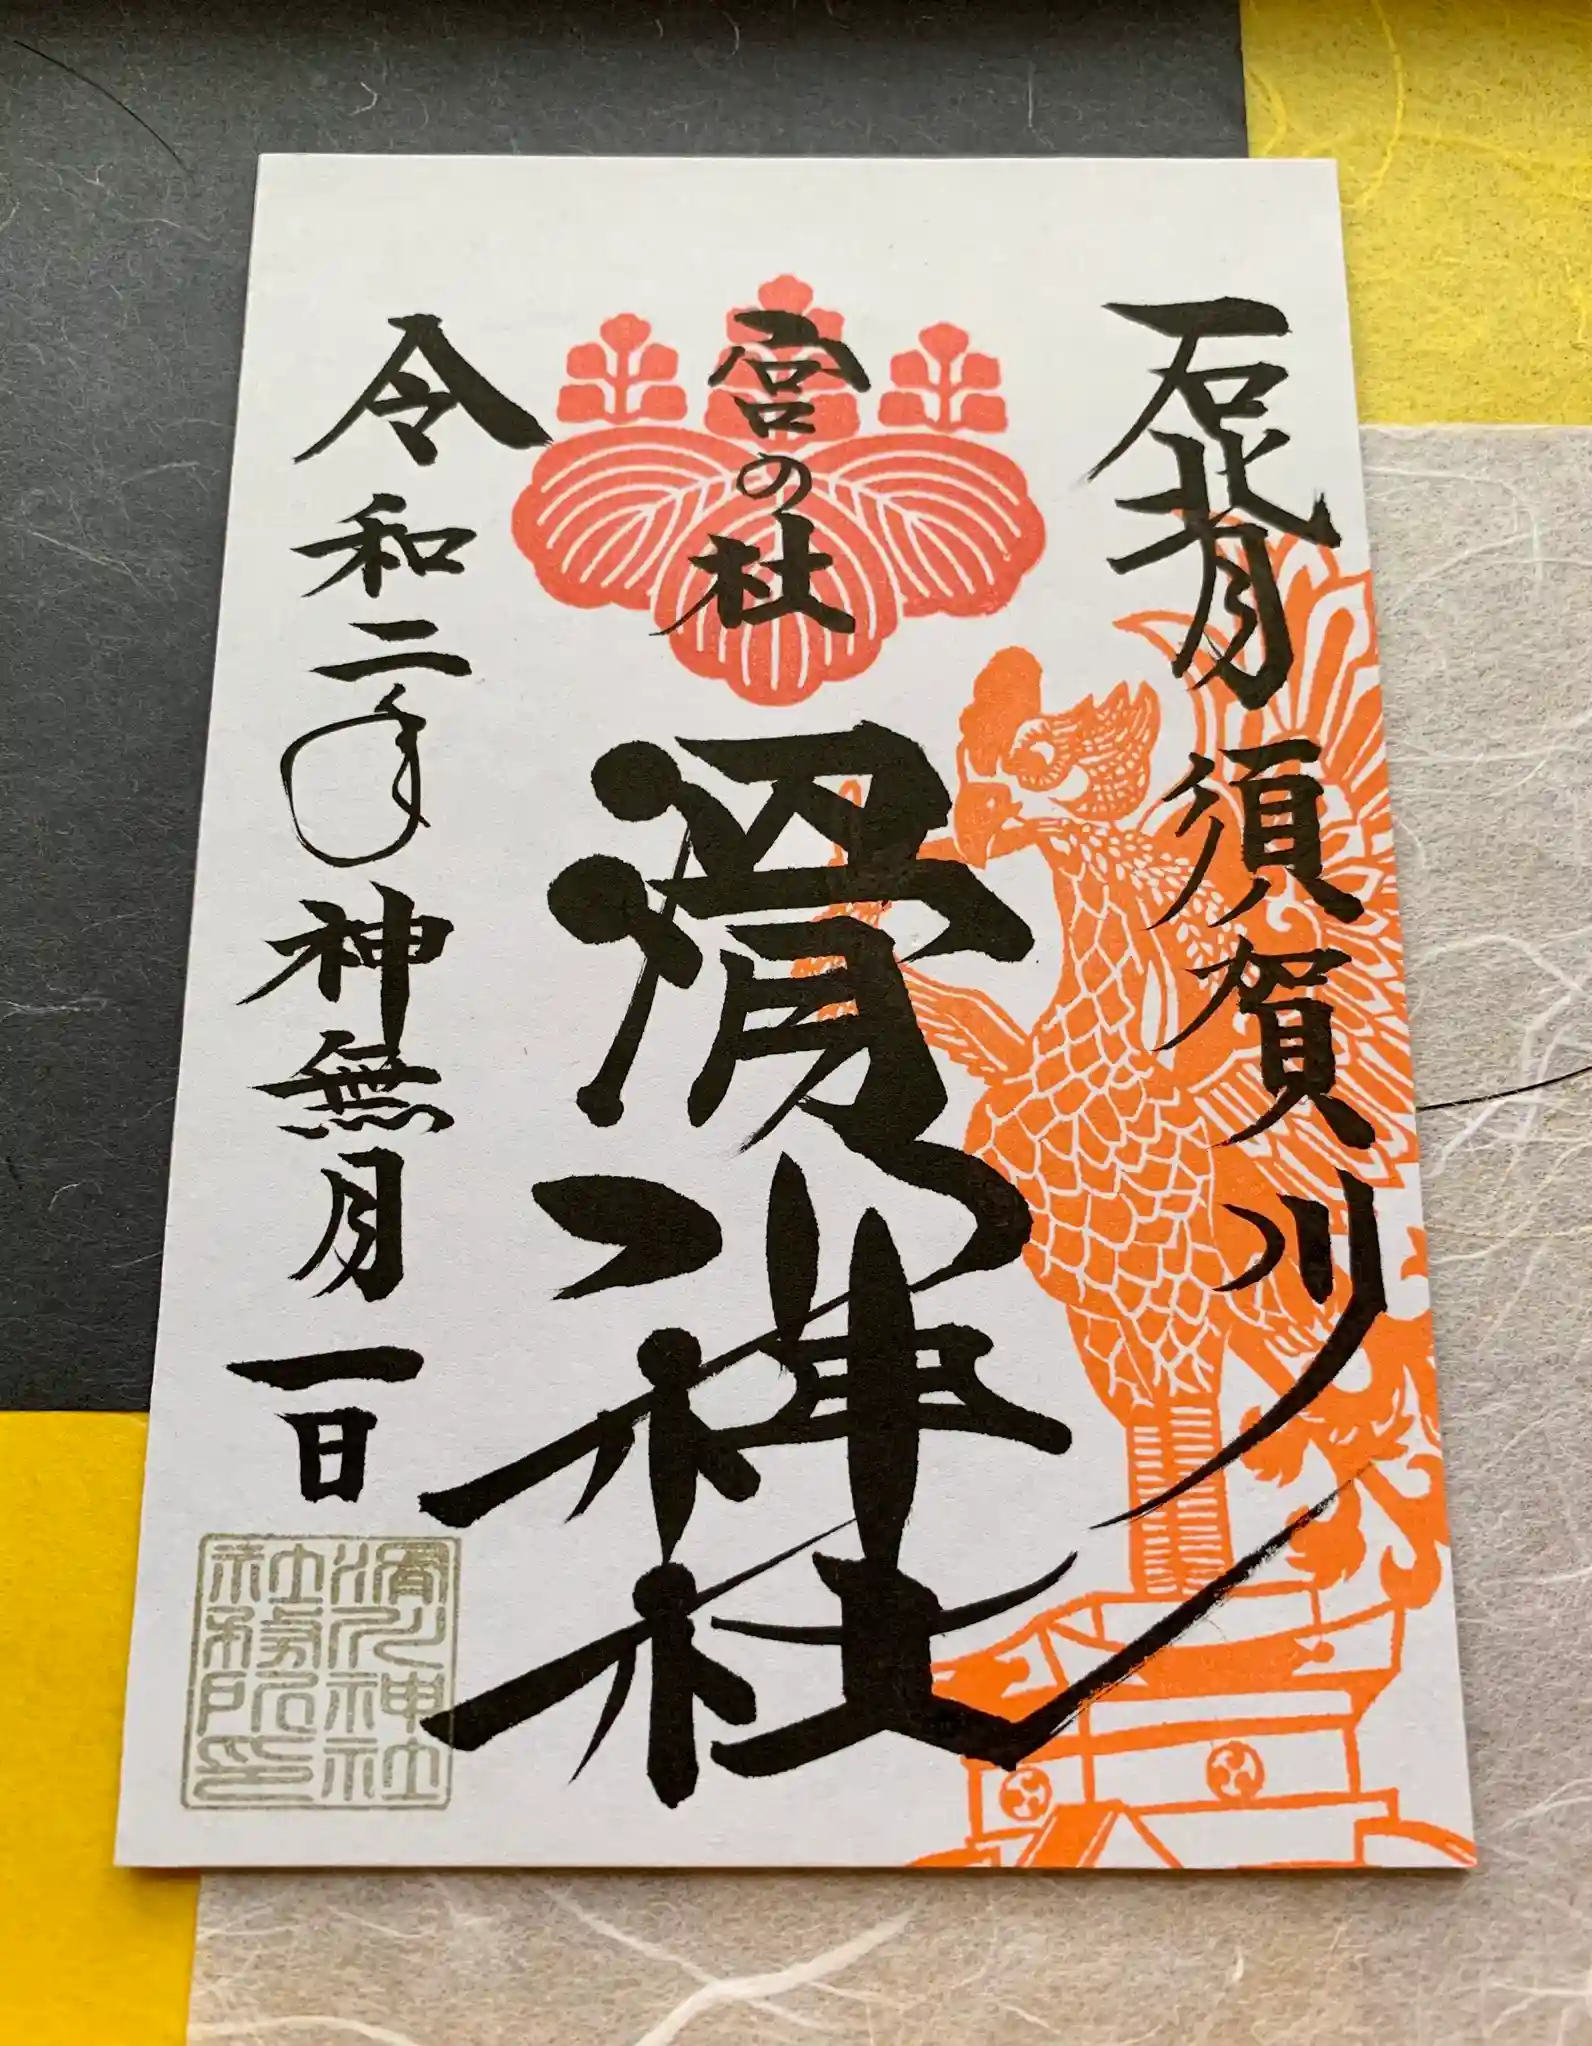 石背 須賀川
宮の杜
滑川神社
令和二年神無月一日
滑川神社
社務所印